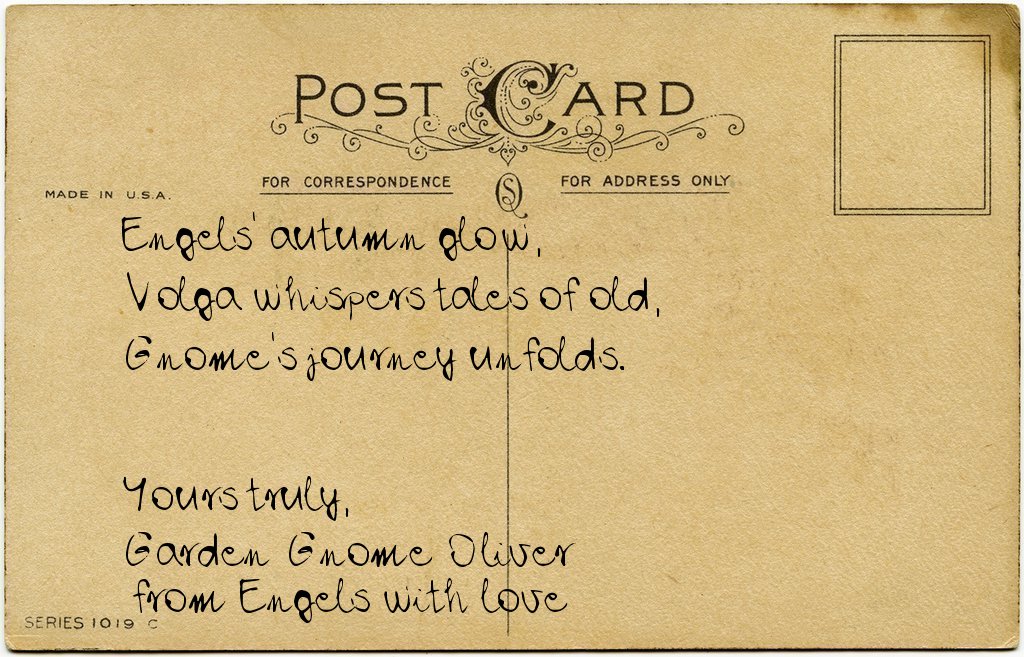 POST CARD
FOR CORRESPONDENCE
FOR ADDRESS ONLY
MADE IN U.S.A.
Engels' autumn glow,
Volga whispers tales of old,
Gnome's journey unfolds.
Yours truly,
Garden Gnome Oliver
from Engels with love
SERIES 1019 C